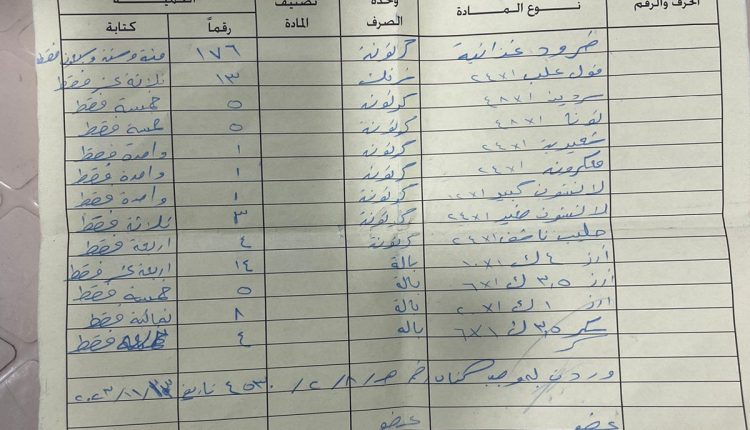 الحرف والرقم نوع المادة وحدة الصرف تصنيف المادة الكمية
رقماً كتابة
طرود غذائية كرتونة ١٧٦ مئة وستة وسبعون فقط
فول علب ٢٤x١ ١٣ ثلاثة عشر فقط
سردين ٤٨x١ كرتونة ٥ خمسة فقط
تونا ٤٨x١ كرتونة ٥ خمسة فقط
شعيرية ٢٤x١ كرتونة ١ واحدة فقط
معكرونة ٢٤x١ كرتونة ١ واحدة فقط
لانشون كبير كرتونة ١ واحدة فقط
لانشون صغير ٢٤x١ كرتونة ٣ ثلاثة فقط
حليب ناشف ٢٤x١ كرتونة ٤ اربعة فقط
أرز ٤ ك ١٠x١ بالة ١٤ اربعة عشر فقط
أرز ٣,٥ ك ٦x١ بالة ٥ خمسة فقط
أرز ١ ك ٢٠x١ بالة ٨ ثمانية فقط
سكر ٣,٥ ك ٦x١ بالة ٤ فقط
وردت بموجب كتاب ٤٥٣٠ تاريخ ٢٠٢٣/١١/١٣
عضو عضو